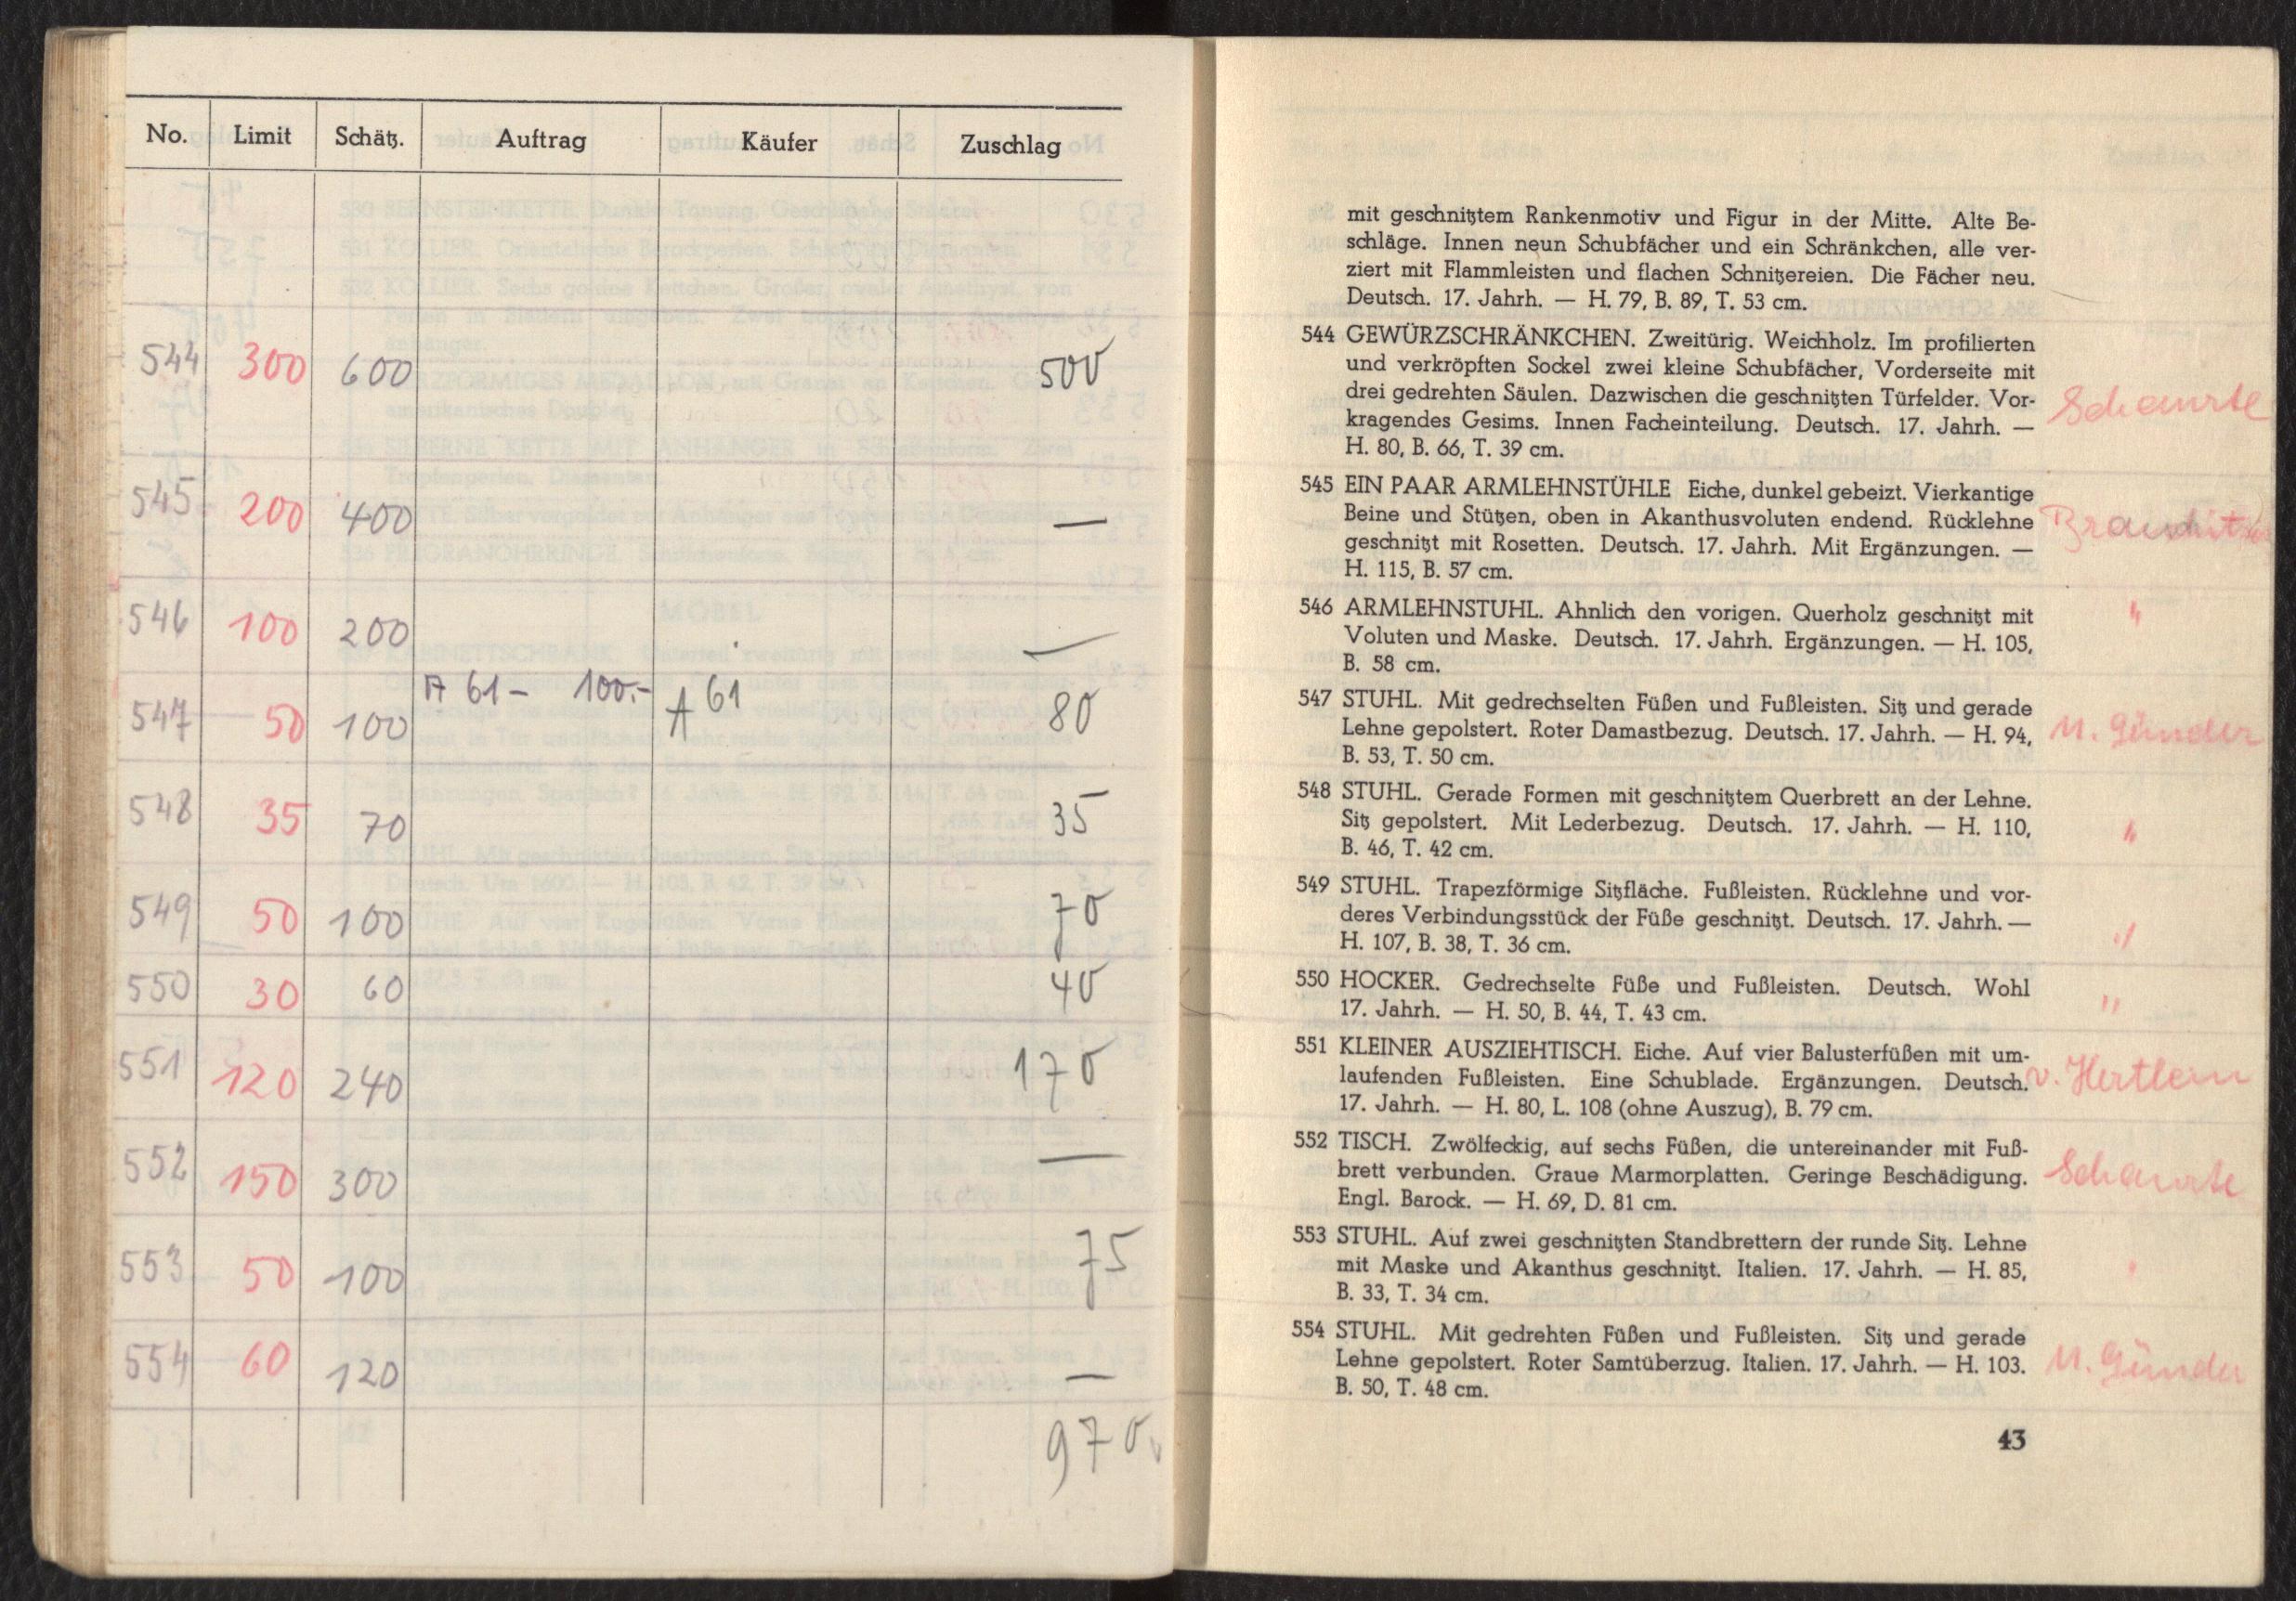 No. Limit Schätz. Auftrag Käufer Zuschlag
544 300 600 500
545 200 400 —
546 100 200 —
547 50 100 A 61 – 100.– A 61 80
548 35 70 35
549 50 100 70
550 30 60 40
551 120 240 170
552 150 300 —
553 50 100 75
554 60 120 —
970
mit geschnitztem Rankenmotiv und Figur in der Mitte. Alte Be-
schläge. Innen neun Schubfächer und ein Schränkchen, alle ver-
ziert mit Flammleisten und flachen Schnitzereien. Die Fächer neu.
Deutsch. 17. Jahrh. — H. 79, B. 89, T. 53 cm.
544 GEWÜRZSCHRÄNKCHEN. Zweitürig. Weichholz. Im profilierten
und verkröpften Sockel zwei kleine Schubfächer, Vorderseite mit
drei gedrehten Säulen. Dazwischen die geschnitzten Türfelder. Vor-
kragendes Gesims. Innen Facheinteilung. Deutsch. 17. Jahrh. —
H. 80, B. 66, T. 39 cm.
545 EIN PAAR ARMLEHNSTÜHLE Eiche, dunkel gebeizt. Vierkantige
Beine und Stützen, oben in Akanthusvoluten endend. Rücklehne
geschnitzt mit Rosetten. Deutsch. 17. Jahrh. Mit Ergänzungen. —
H. 115, B. 57 cm.
546 ARMLEHNSTUHL. Ahnlich den vorigen. Querholz geschnitzt mit "
Voluten und Maske. Deutsch. 17. Jahrh. Ergänzungen. — H. 105,
B. 58 cm.
547 STUHL. Mit gedrechselten Füßen und Fußleisten. Sitz und gerade
Lehne gepolstert. Roter Damastbezug. Deutsch. 17. Jahrh. — H. 94, M. Günder
B. 53, T. 50 cm.
548 STUHL. Gerade Formen mit geschnitztem Querbrett an der Lehne.
Sitz gepolstert. Mit Lederbezug. Deutsch. 17. Jahrh. — H. 110, "
B. 46, T. 42 cm.
549 STUHL. Trapezförmige Sitzfläche. Fußleisten. Rücklehne und vor-
deres Verbindungsstück der Füße geschnitzt. Deutsch. 17. Jahrh. — "
H. 107, B. 38, T. 36 cm.
550 HOCKER. Gedrechselte Füße und Fußleisten. Deutsch. Wohl
17. Jahrh. — H. 50, B. 44, T. 43 cm. "
551 KLEINER AUSZIEHTISCH. Eiche. Auf vier Balusterfüßen mit um-
laufenden Fußleisten. Eine Schublade. Ergänzungen. Deutsch. v. Hertlein
17. Jahrh. — H. 80, L. 108 (ohne Auszug), B. 79 cm.
552 TISCH. Zwölfeckig, auf sechs Füßen, die untereinander mit Fuß-
brett verbunden. Graue Marmorplatten. Geringe Beschädigung.
Engl. Barock. — H. 69, D. 81 cm.
553 STUHL. Auf zwei geschnitzten Standbrettern der runde Sitz. Lehne
mit Maske und Akanthus geschnitzt. Italien. 17. Jahrh. — H. 85,
B. 33, T. 34 cm.
554 STUHL. Mit gedrehten Füßen und Fußleisten. Sitz und gerade
Lehne gepolstert. Roter Samtüberzug. Italien. 17. Jahrh. — H. 103. M. Günder
B. 50, T. 48 cm.
43